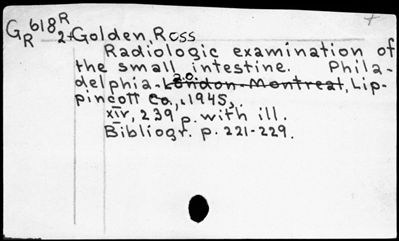 G 618 R
R 2+ Golden, Ross
Radiologic examination of
the small intestine. Phila-
delphia. a.o. London-Montreal, Lip-
pincott Co., c1945,
xiv, 239 p. with ill.
Bibliogr. p. 221-229.